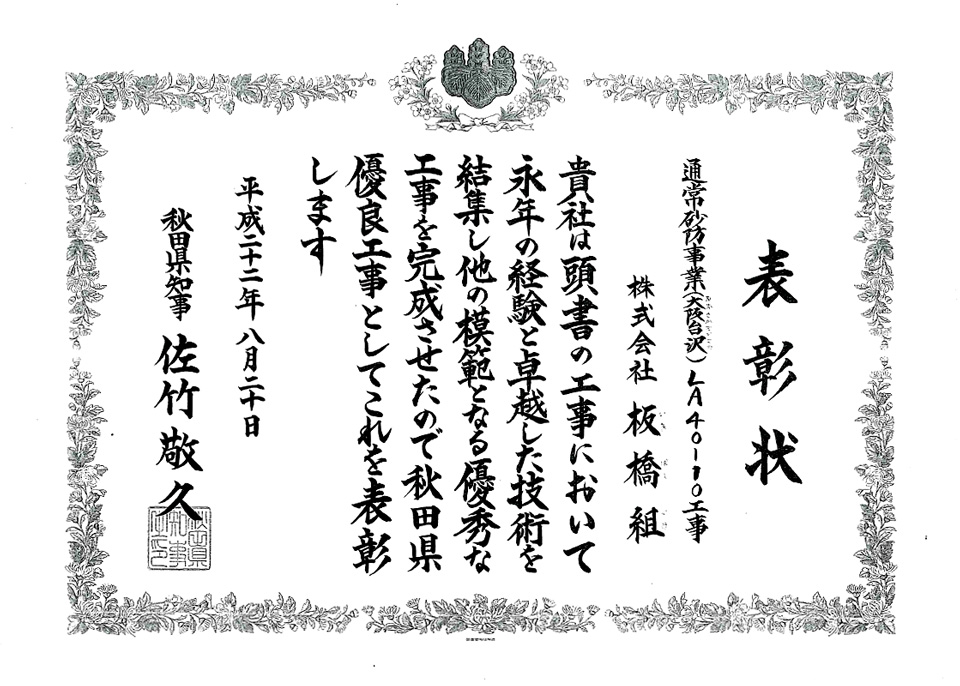 表彰状
通常砂防事業(大阪台沢)LA40-10工事
株式会社 板橋組
貴社は頭書の工事において
永年の経験と卓越した技術を
結集し他の模範となる優秀な
工事を完成させたので秋田県
優良工事としてこれを表彰
します
平成二十二年八月二十日
秋田県知事 佐竹敬久